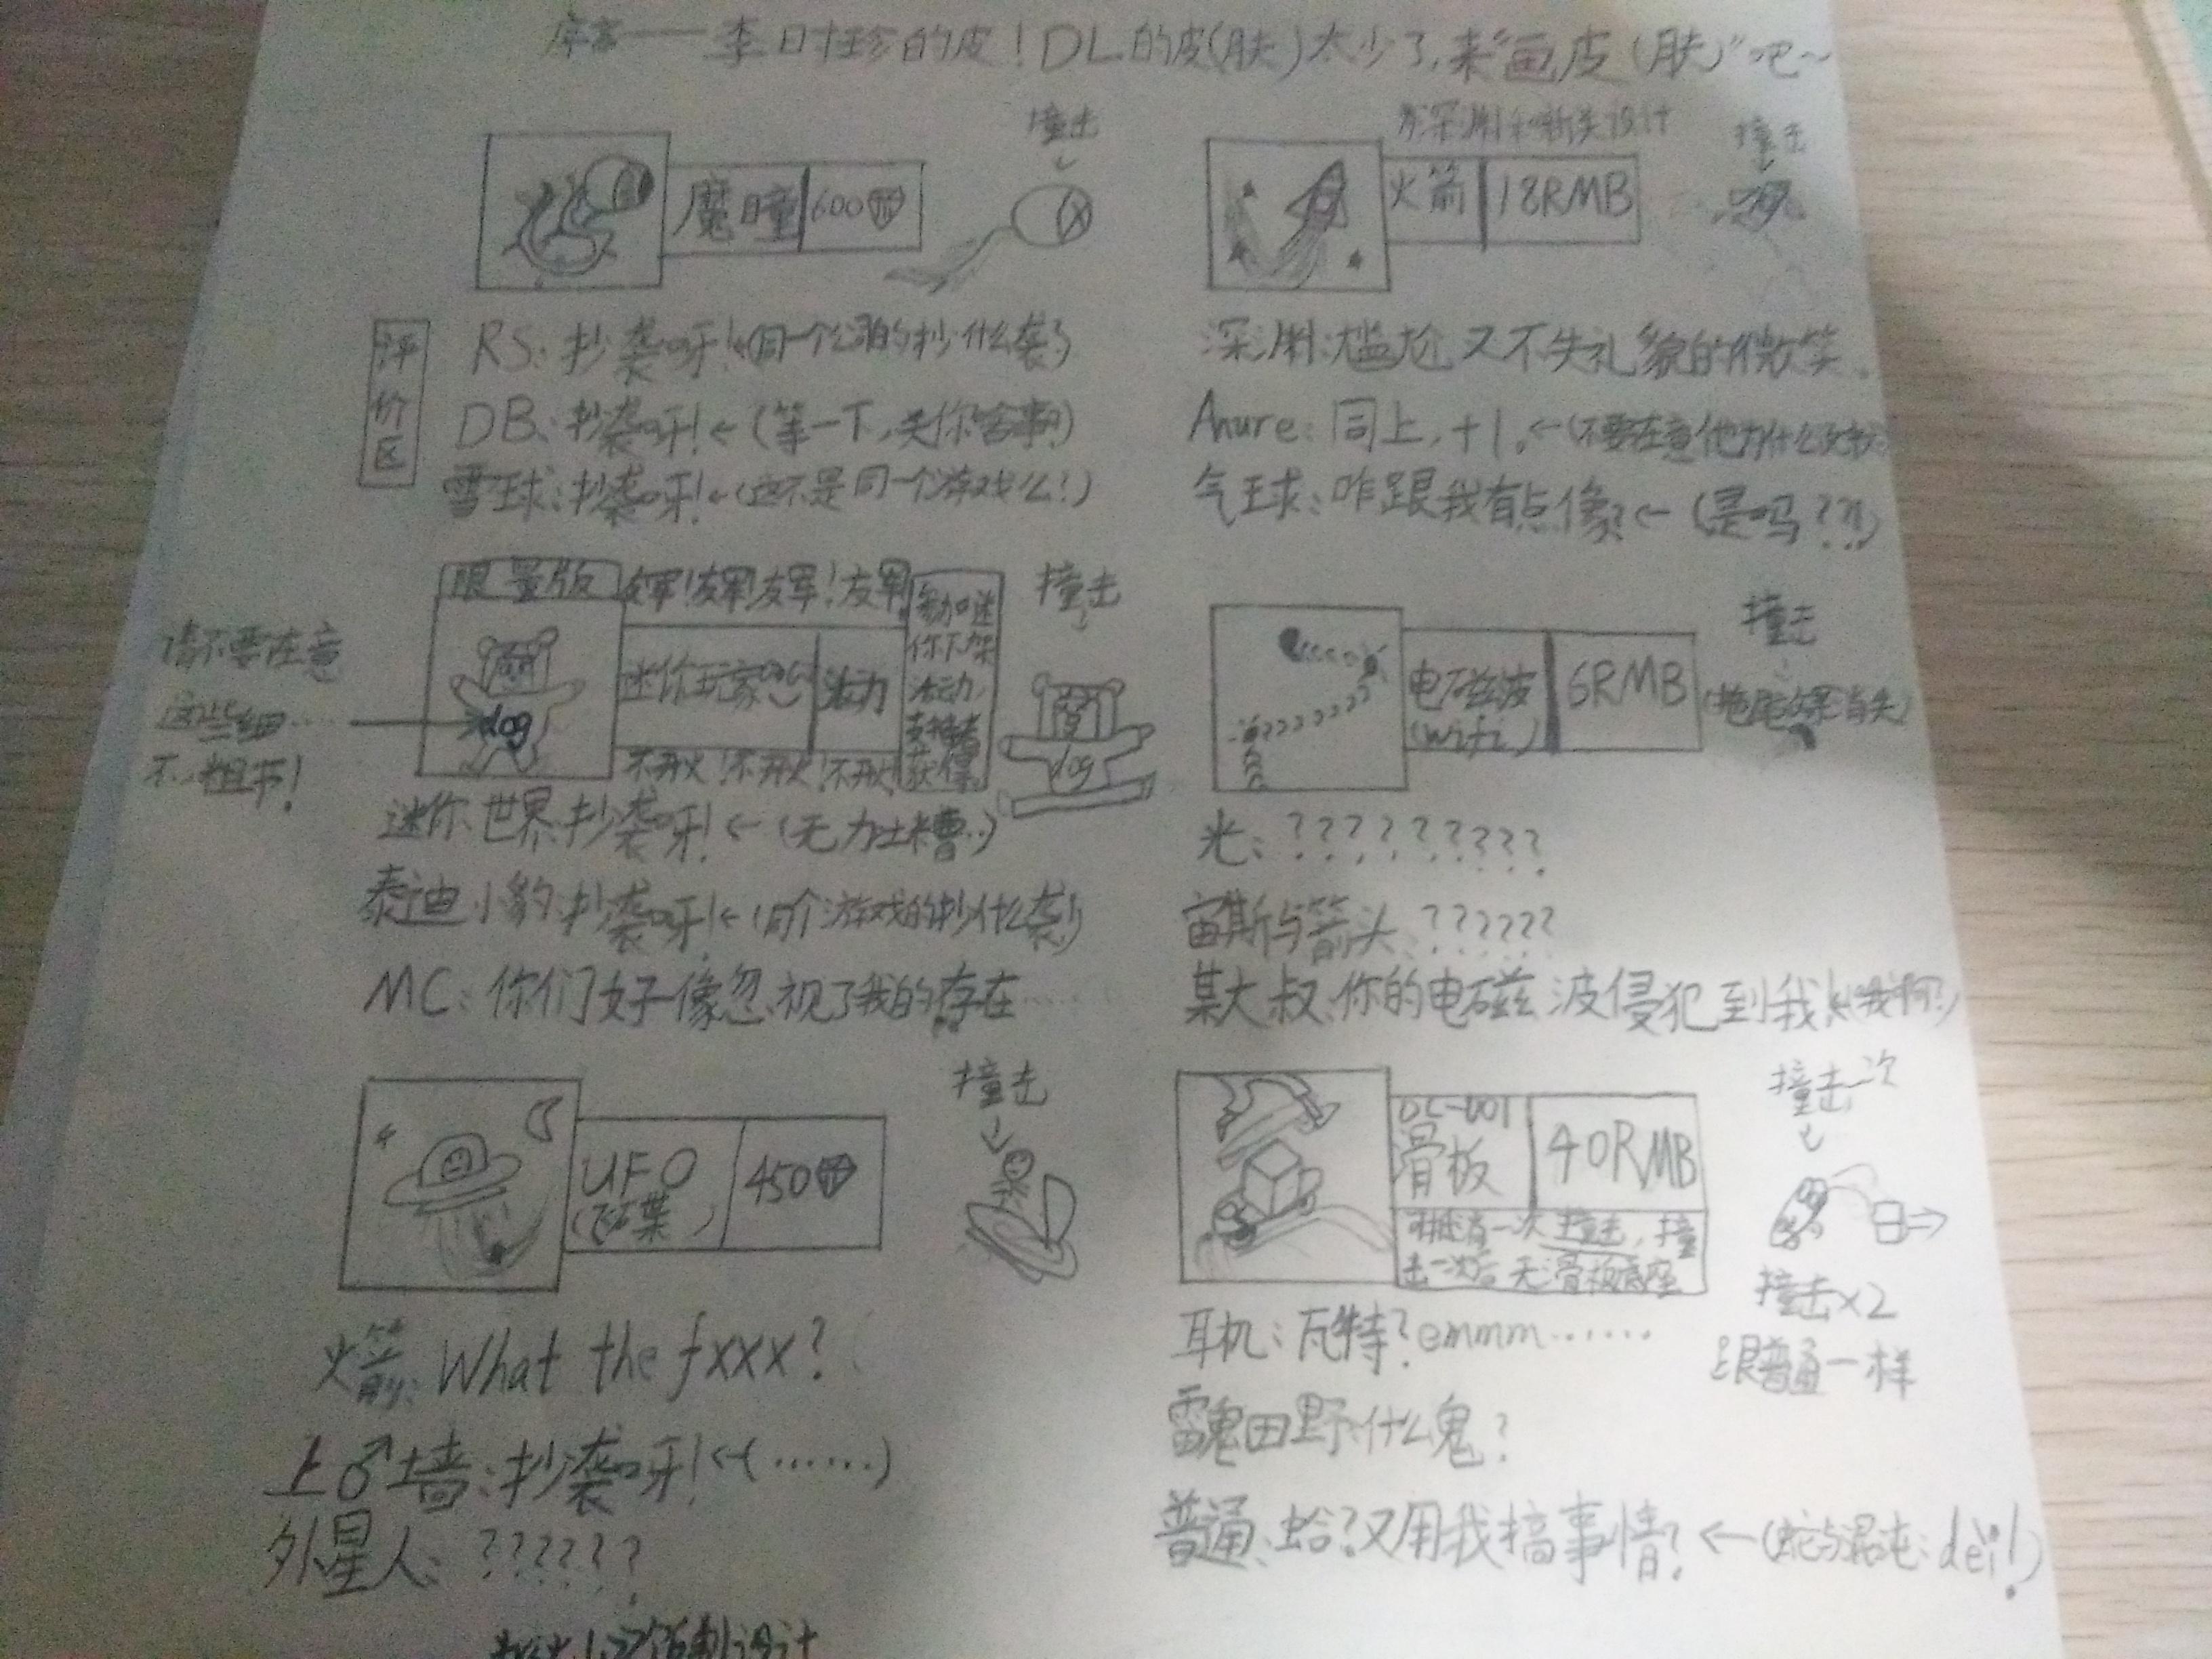 序言——李时珍的皮！DL的皮(肤)太少了,来“画皮(肤)”吧~
魔瞳 600
撞击
为深渊和
设计
火箭 18RMB
撞击
评价区
RS:抄袭呀!←(同一个公司的抄什么袭)
DB:抄袭呀!←(等一下,关你啥事?)
雪球:抄袭呀!←(这不是同一个游戏么!)
深渊:尴尬又不失礼貌的微笑。
Anure:同上,+1。←(不要在意他为什么
气球:咋跟我有点像?←(是吗??!)
限量版
友军!友军!友军!友军!
迷你玩家 活动
不开火!不开火!不开火!
参加迷你下架活动,支持者获得
撞击
dog
dog
请不要在意
这些细……
不,粗节!
迷你世界:抄袭呀!←(无力吐槽..)
泰迪小豹:抄袭呀!←(同个游戏的抄什么袭!)
MC:你们好像忽视了我的存在……
电磁波
(wifi)
6RMB
撞击
(拖尾效果消失)
光:?????????
宙斯与箭头:??????
某大叔:你的电磁波侵犯到我!
UFO
(飞碟)
450
撞击
火箭:What the fxxx?
上♂墙:抄袭呀!←(……)
外星人:??????
DL-001
滑板
40RMB
可抵有一次撞击,撞
击一次后无滑板底座
撞击一次
撞击x2
跟普通一样
耳机:瓦特?emmm……
雷鬼田野:什么鬼?
普通:蛤?又用我搞事情?←(蛇与混沌:dei!)
设计